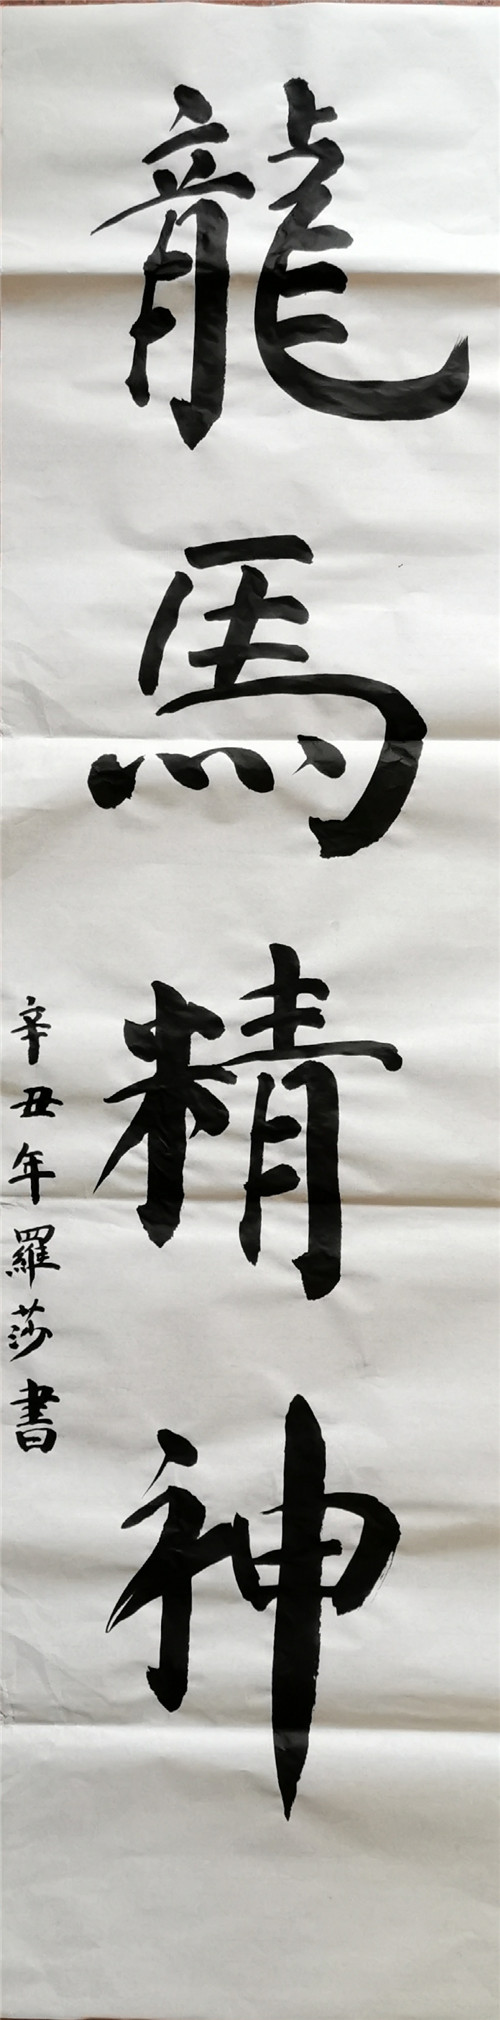 龍馬精神
辛丑年羅莎書